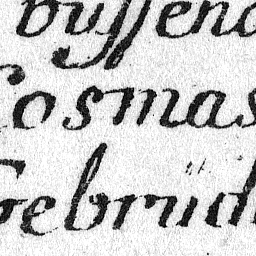 buſſend
Cosmas
Gebrüd